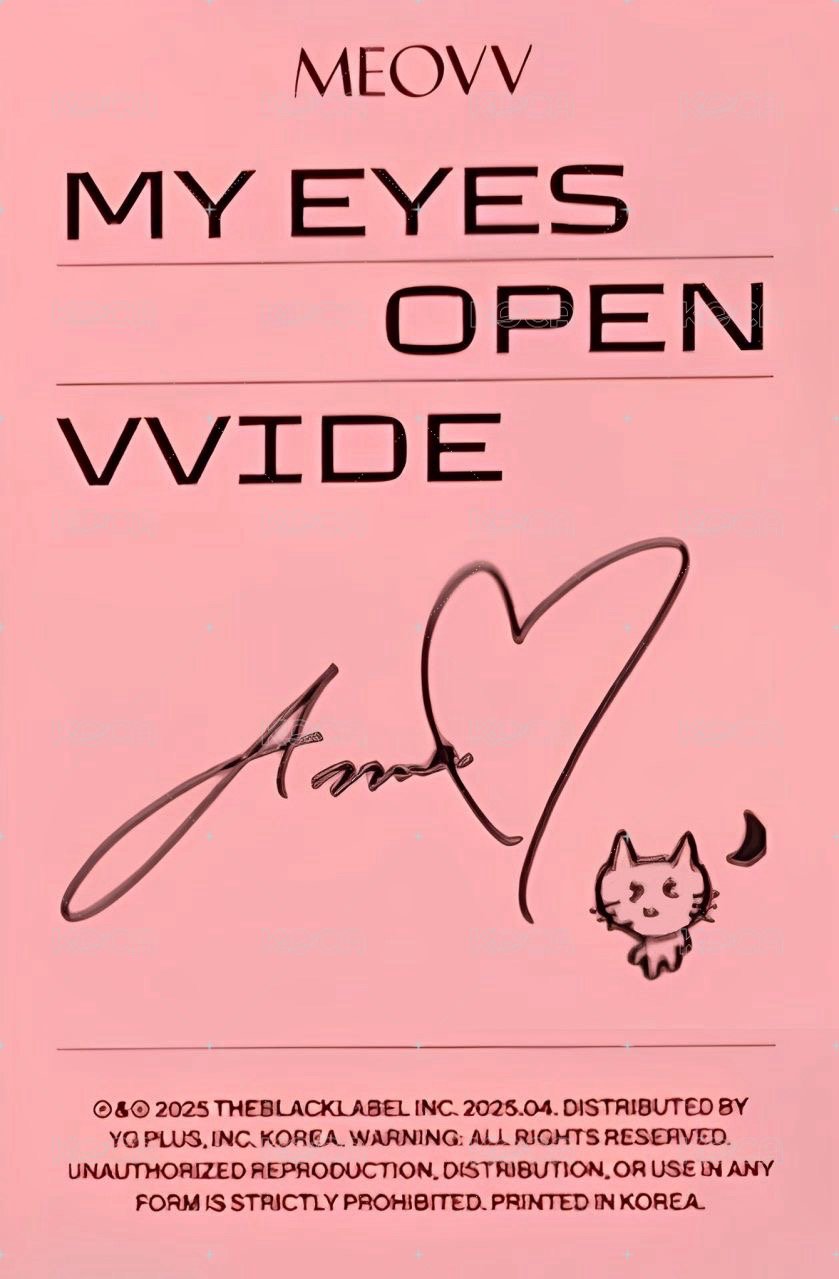 MEOVV
MY EYES
OPEN
VVIDE
Anna
℗&© 2025 THEBLACKLABEL INC. 2025.04. DISTRIBUTED BY
YG PLUS, INC. KOREA. WARNING: ALL RIGHTS RESERVED.
UNAUTHORIZED REPRODUCTION, DISTRIBUTION, OR USE IN ANY
FORM IS STRICTLY PROHIBITED. PRINTED IN KOREA.